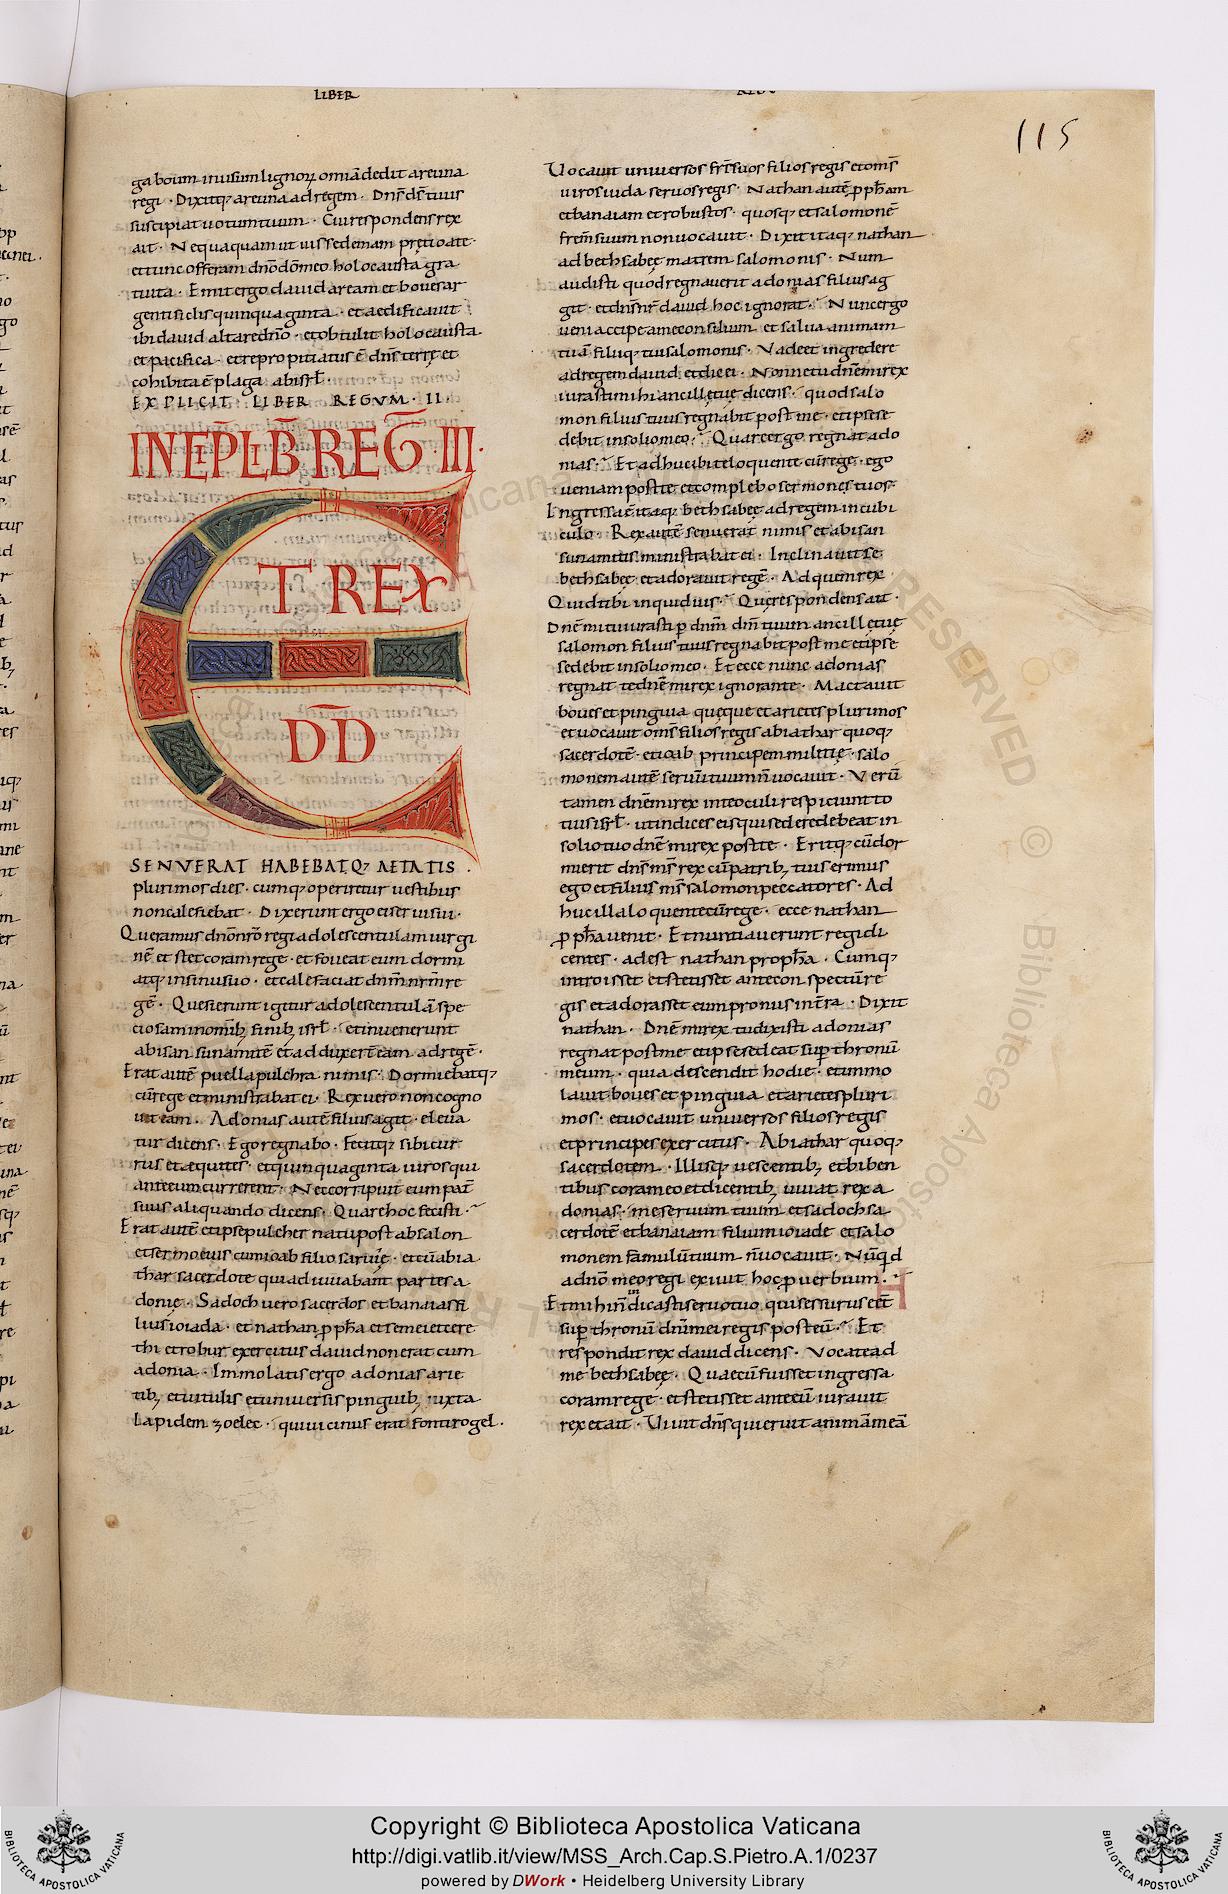 LIBER
115
ga boum in usum lignoꝝ omiā dedit areuna
regi · Dixitq; areuna ad regem · Dns̄ ds̄ tuus
suscipiat uotum tuum · Cui respondens rex
ait · Nequaquam ut uis sed emam pretio a te·
et nunc offeram dnō dō meo holocausta gra
tuita · Emit ergo dauid aream et boues ar
genti siclis quinquaginta · et aedificauit
ibi dauid altare dnō · et obtulit holocausta
et pacifica · et repropitiatus ē dns̄ terrę et
cohibita ē plaga ab isrł ·
EXPLICIT LIBER REGVM · II ·
INCP̄ LIB̄ REḠ III·
ET REX
DD̄
SENVERAT HABEBATQ; AETATIS
plurimos dies · cumq; operiretur uestibus
non calefiebat · Dixerunt ergo ei serui sui·
Queramus dnō nr̄o regi adolescentulam uirgi
nē et stet coram rege · et foueat eum dormi
atq; in sinu suo · et calefaciat dnm̄ nr̄m re
gē · Quesierunt igitur adolescentulā spe
ciosam in omib; finib; isrł · et inuenerunt
abisag sunamitē et adduxer̄ eam ad regē ·
Erat autē puella pulchra nimis · Dormiebatq;
cū rege et ministrabat ei · Rex uero non cogno
uit eam · Adonias autē filius agit · eleua
tur dicens · Ego regnabo · Fecitq; sibi cur
rus et aequites · et quinquaginta uiros qui
ante eum currerent · Nec corripuit eum pat̄
suus aliquando dicens · Quare hoc fecisti ·
Erat autē et ipse pulcher natu post absalon
et sermo eius cum ioab filio saruię · et cū abia
thar sacerdote qui adiuuabant partes a
donię · Sadoch uero sacerdos et banaias fi
lius ioiada · et nathan ꝓpha et semei et cere
thi et robur exercitus dauid non erat cum
adonia · Immolatis ergo adonias arie
tib; et uitulis et uniuersis pinguib; iuxta
lapidem zoelec · qui uicinus erat fonti rogel ·
Uocauit uniuersos frs̄ suos filios regis et oms̄
uiros iuda seruos regis · Nathan autē ꝓpham
et banaiam et robustos · quosq; et salomonē
frem̄ suum non uocauit · Dixit itaq; nathan
ad bethsabeę matrem salomonis · Num
audisti quod regnauerit adonias filius ag
git · et dns̄ nr̄ dauid hoc ignorat · Nunc ergo
ueni accipe a me consilium et salua animam
tuā filiiq; tui salomonis · Vade et ingredere
ad regem dauid et dic ei · Nonne tu dnē mi rex
iurasti mihi ancillę tuę dicens · quod salo
mon filius tuus regnabit post me · et ipse se
debit in solio meo · Quare ergo regnat ado
nias · Et adhuc ibi te loquente cū rege · ego
ueniam post te et complebo sermones tuos·
Ingressa ē itaq; bethsabeę ad regem in cubi
culo · Rex autē senuerat nimis et abisag
sunamitis ministrabat ei · Inclinauit se
bethsabeę et adorauit regē · Ad quem rex
Quid tibi inquid uis · Quę respondens ait ·
Dnē mi tu iurasti p dnm̄ dm̄ tuum ancillę tuę
salomon filius tuus regnabit post me et ipse
sedebit in solio meo · Et ecce nunc adonias
regnat te dnē mi rex ignorante · Mactauit
boues et pinguia quęque et arietes plurimos
et uocauit oms̄ filios regis abiathar quoq;
sacerdotē · et ioab principem militię · salo
monem autē seruū tuum n̄ uocauit · Verū
tamen dnē mi rex in te oculi respiciunt to
tius isrł · ut indices eis qui sedere debeat in
solio tuo dnē mi rex post te · Eritq; cū dor
mierit dns̄ ms̄ rex cū patrib; tuis erimus
ego et filius ms̄ salomon peccatores · Ad
huc illa loquente cū rege · ecce nathan
ꝓpha uenit · Et nuntiauerunt regi di
centes · adest nathan propha · Cumq;
introisset et stetisset ante conspectū re
gis et adorasset eum pronus in tr̄a · Dixit
nathan · Dnē mi rex tu dixisti adonias
regnat post me et ipse sedeat sup thronū
meum · quia descendit hodie · et immo
lauit boues et pinguia et arietes pluri
mos · et uocauit uniuersos filios regis
et principes exercitus · Abiathar quoq;
sacerdotem · Illisq; uescentib; et biben
tibus coram eo et dicentib; uiuat rex a
donias · me seruum tuum et sadoch sa
cerdotē et banaiam filium ioiade et salo
monem famulū tuum n̄ uocauit · Nūqd
a dnō meo regi exiuit hoc ꝓ uerbium ·
Et mihi n̄ indicasti seruo tuo qui sessurus eēt
sup thronū dnī mei regis post eū · Et
respondit rex dauid dicens · Vocate ad
me bethsabeę · Quae cū fuisset ingressa
coram rege · et stetisset ante eū iurauit
rex et ait · Uiuit dns̄ qui eruit animā meā
Copyright © Biblioteca Apostolica Vaticana
http://digi.vatlib.it/view/MSS_Arch.Cap.S.Pietro.A.1/0237
powered by DWork • Heidelberg University Library
BIBLIOTECA APOSTOLICA VATICANA
BIBLIOTECA APOSTOLICA VATICANA